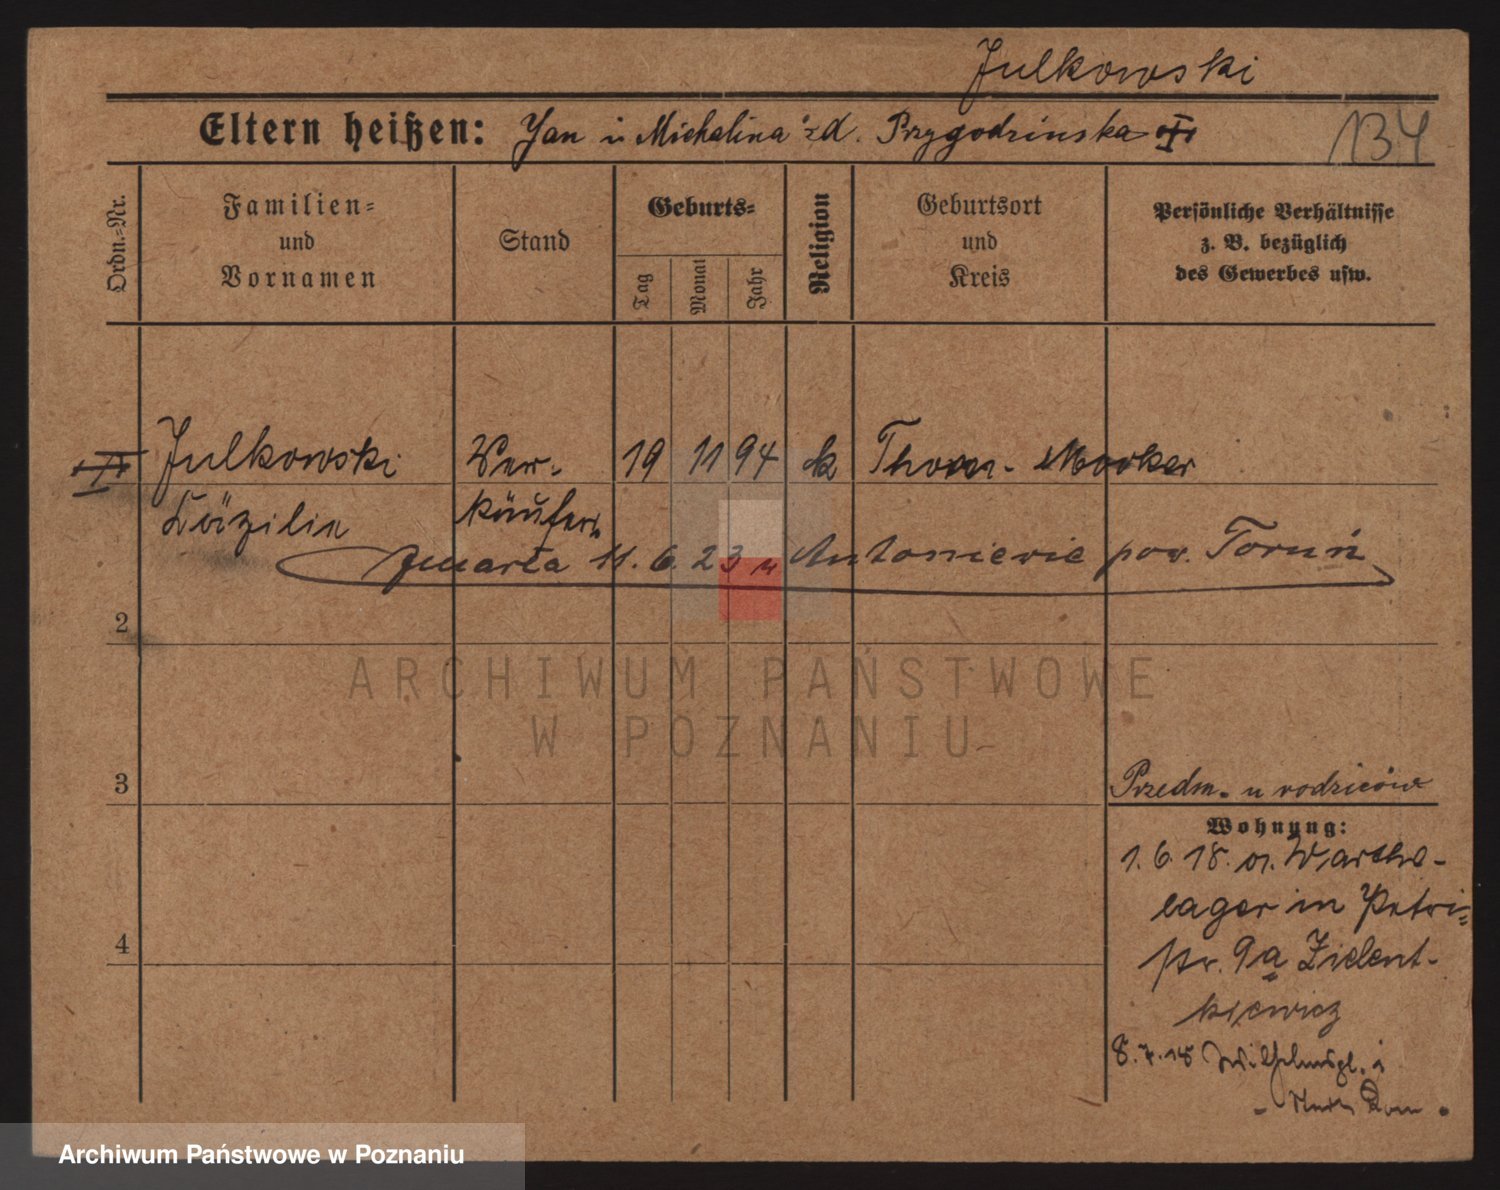 Julkowski
Eltern heißen: Jan i Michalina zd. Przygodzinska
134
Ordn.-Nr.
Familien-
und
Vornamen
Stand
Geburts-
Tag
Monat
Jahr
Religion
Geburtsort
und
Kreis
Persönliche Verhältnisse
z. B. bezüglich
des Gewerbes usw.
Julkowski Ver- 19 11 94 k Thorn - Mocker
Cäzilie käuferin
zmarła 11. 6. 23 w Antoniewie pow. Toruń
2
3
Przedm. u rodziców
Wohnung:
1. 6. 18. Warthe-
lager in Petri-
str. 9a Zielent-
kiewicz
4
8. 7. 18 Wilhelmspl.
ARCHIWUM PAŃSTWOWE
W POZNANIU
Archiwum Państwowe w Poznaniu